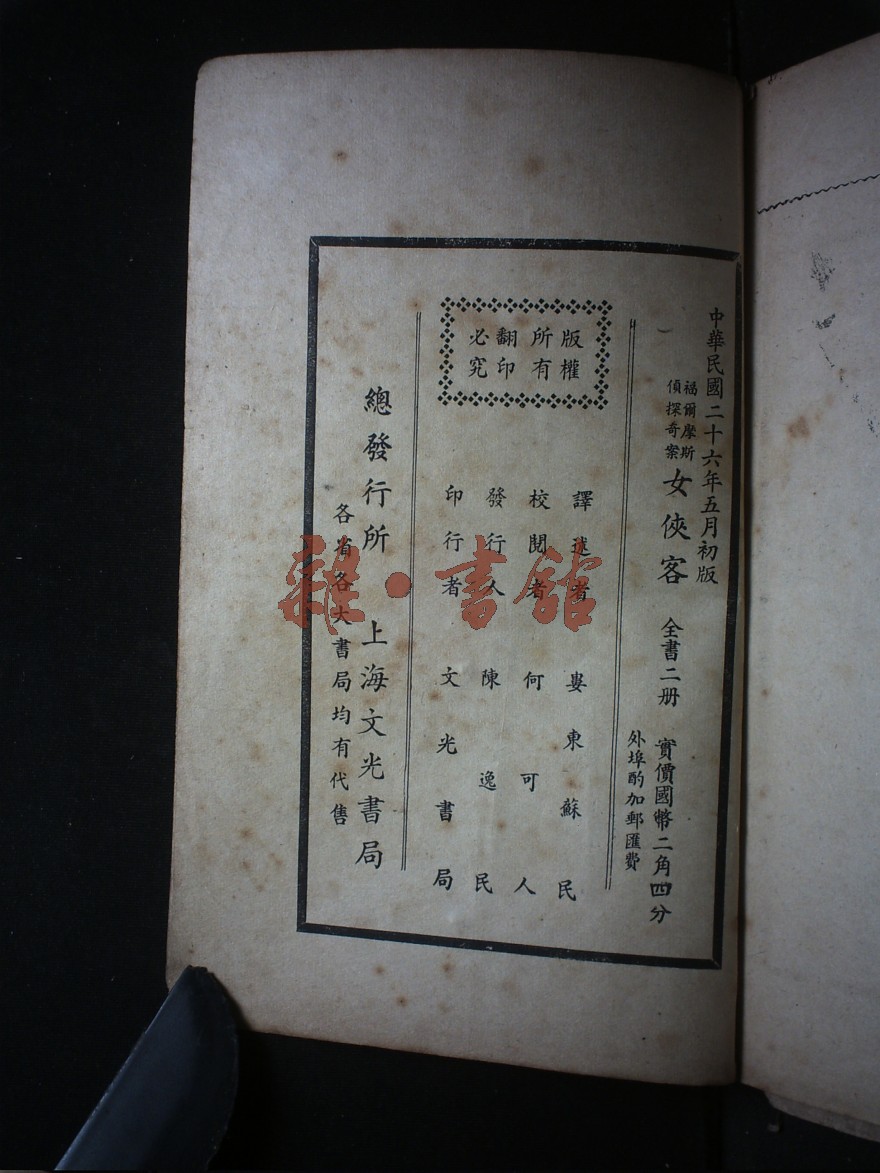 中華民國二十六年五月初版
福爾摩斯
偵探奇案
女俠客 全書二册 實價國幣二角四分
外埠酌加郵匯費
版權
所有
翻印
必究
譯述者 婁東蘇民
校閱者 何可人
發行人 陳逸民
印行者 文光書局
總發行所 上海文光書局
各省各大書局均有代售
雜·書館